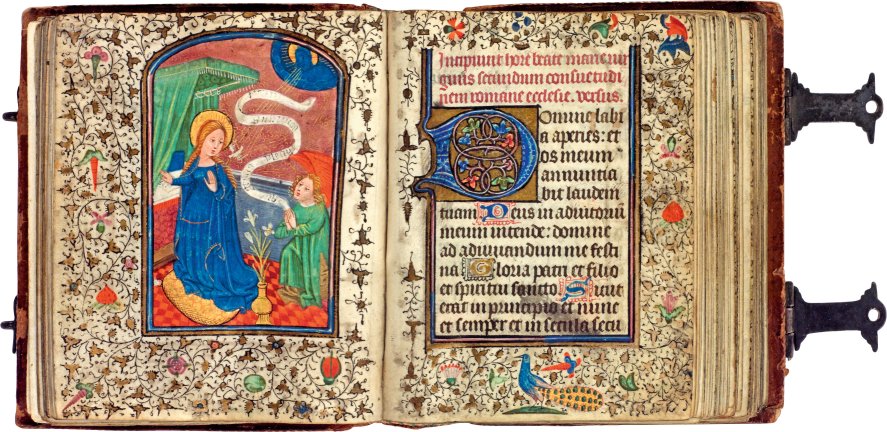 Incipiunt hore beate marie uir
ginis secundum consuetudi
nem romane ecclesie. versus.
Domine labi
a aperies: et
os meum
annuncia
bit laudem
tuam Deus in adiutoriu
meum intende: domine
ad adiuuandum me festi
na Gloria patri et filio
et spiritui sancto Sicut
erat in principio et nunc
et semper et in secula secu